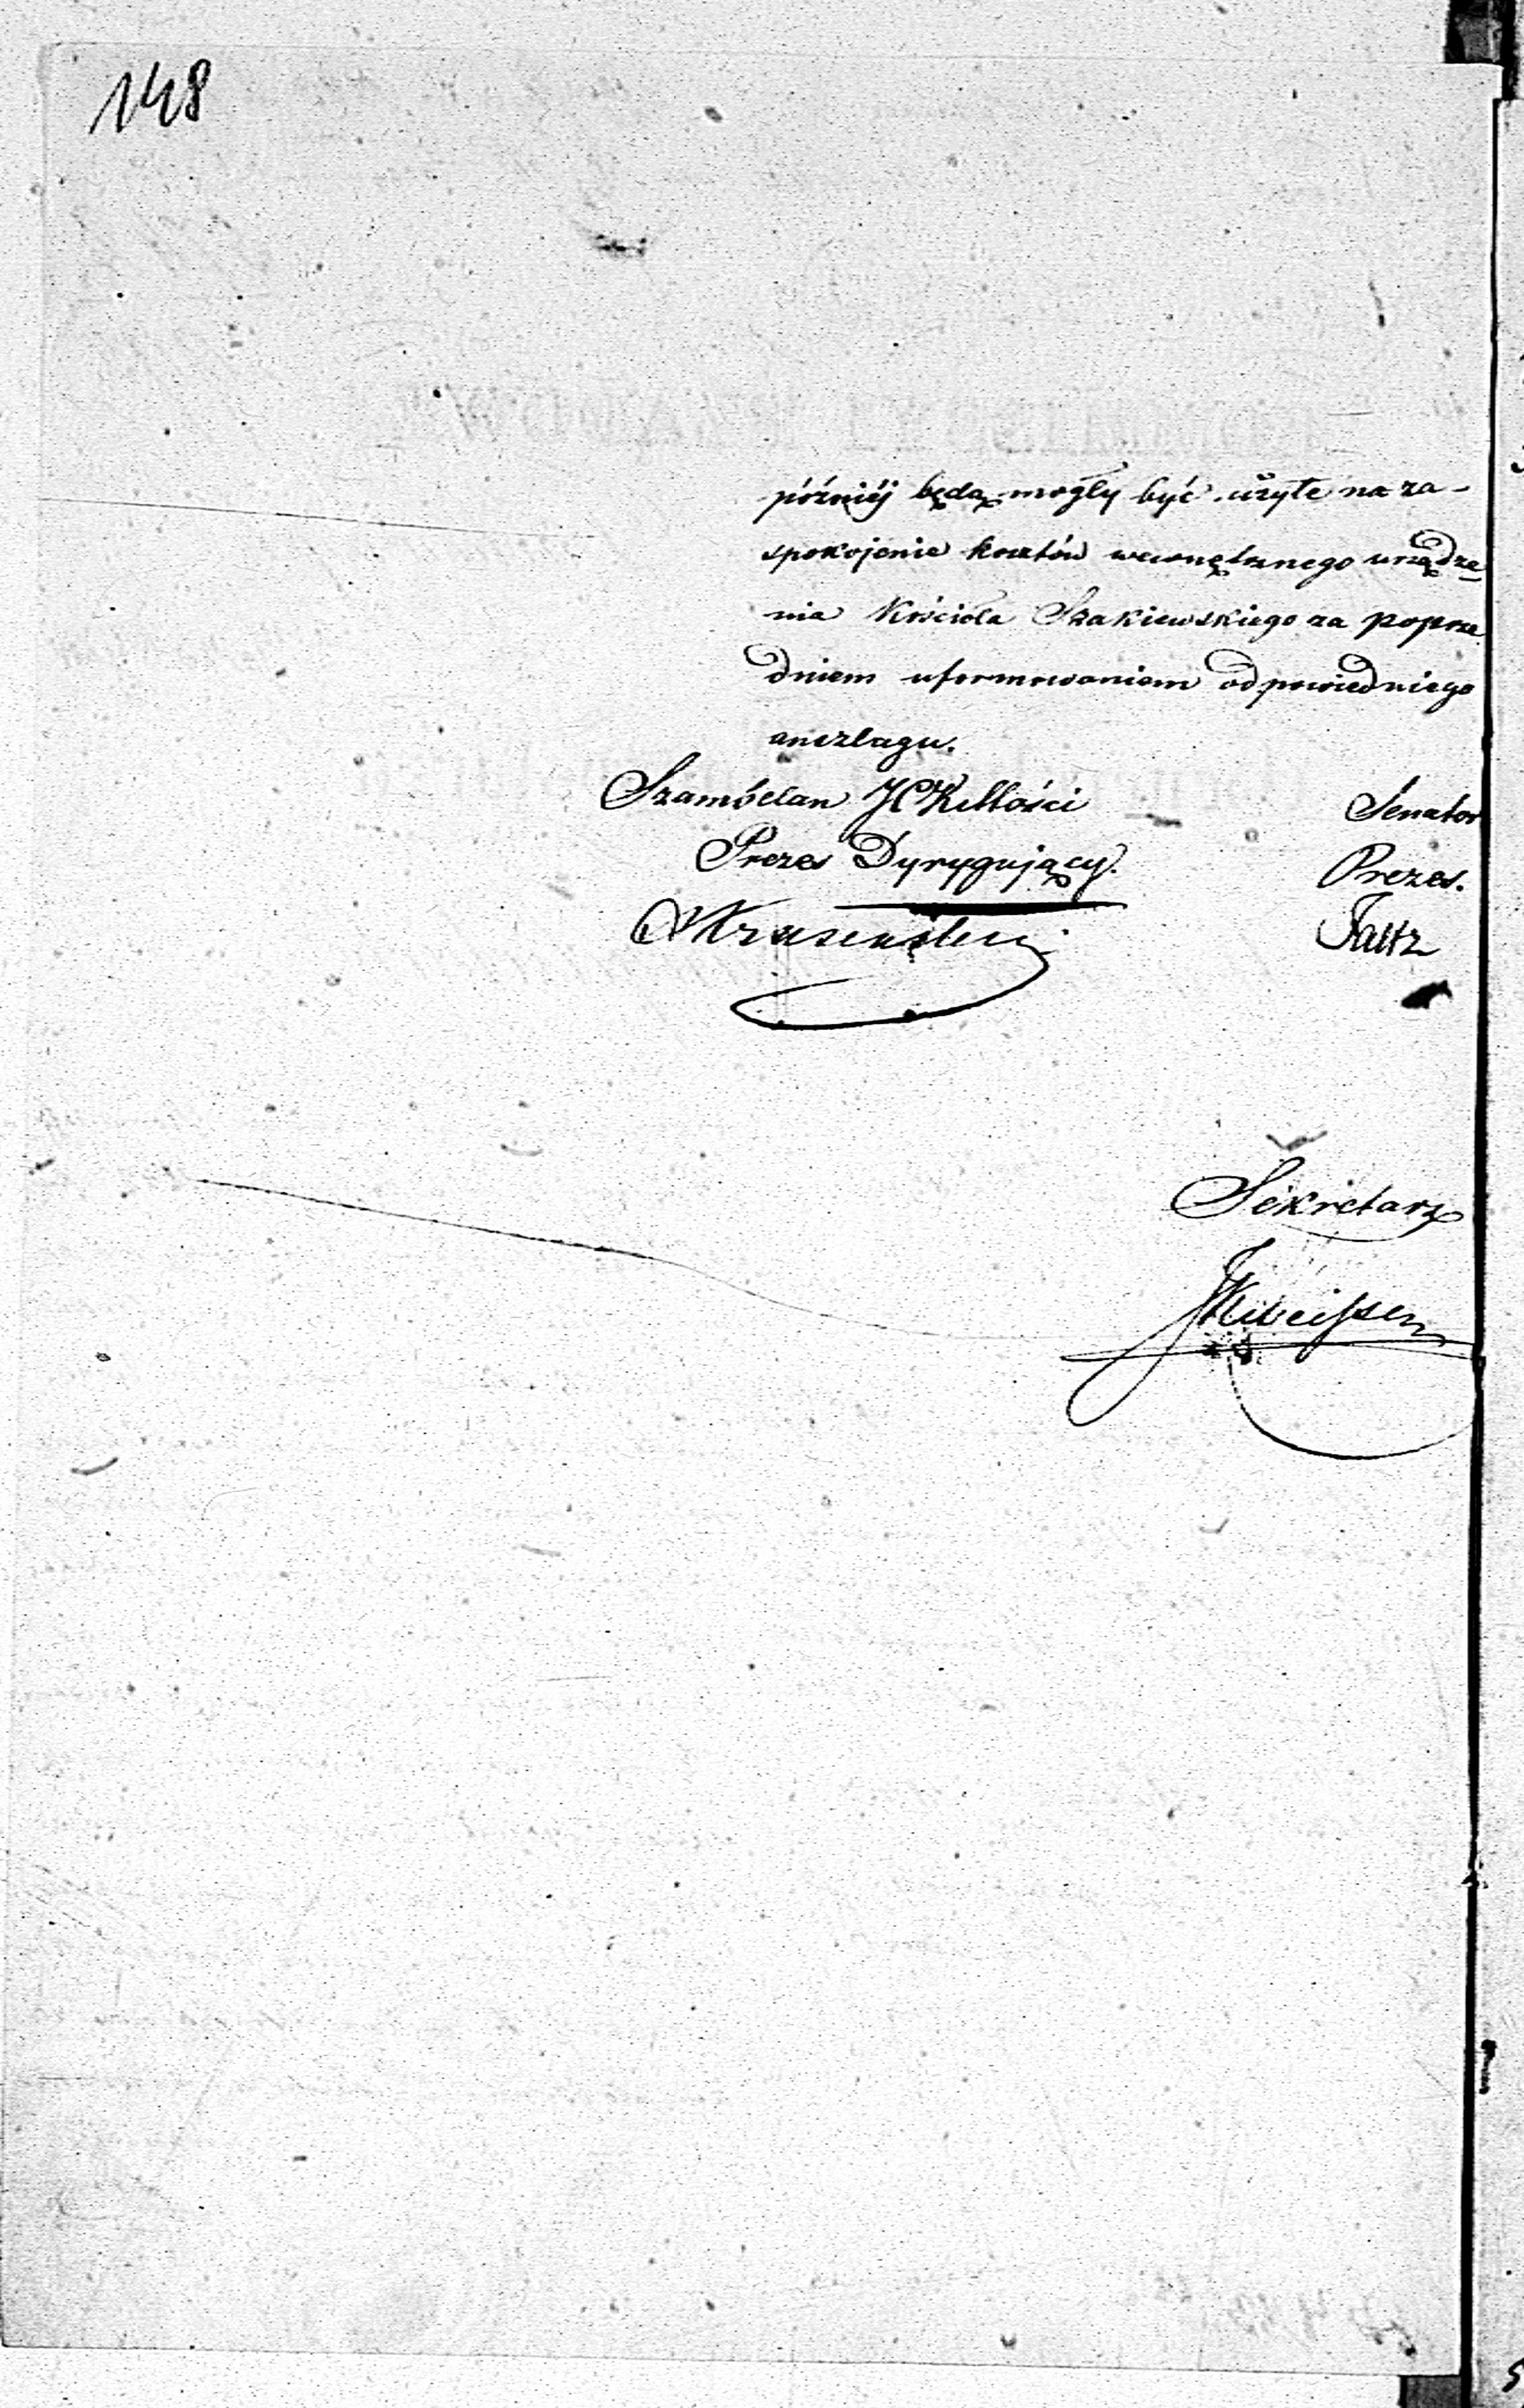 148
późniéj będą mogły być użyte na za-
spokojenie kosztów wewnętrznego urządze
nia Kościoła Szakiewskiego za poprze
dniem uformowaniem odpowiedniego
anszlagu.
Szambelan Senator
Prezes Dyrygujący. Prezes.
Faltz
Sekretarz